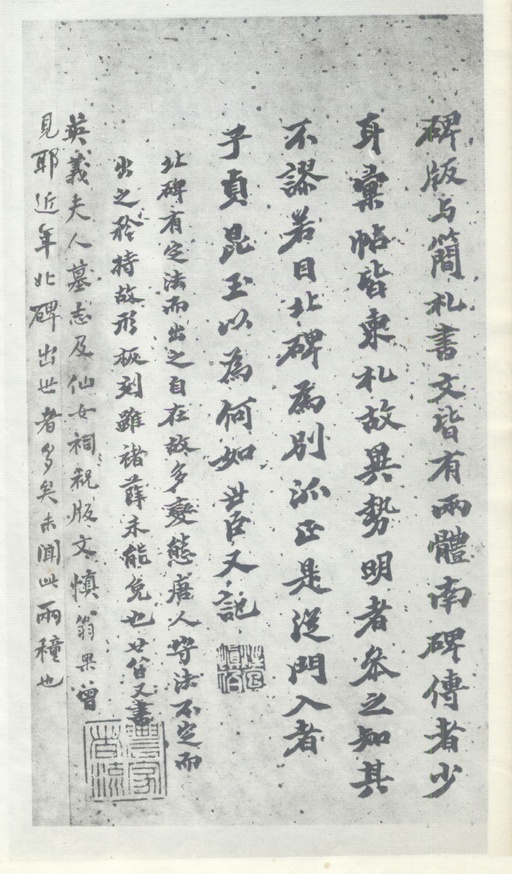 碑版与簡札書文皆有兩體南碑傳者少
耳彙帖皆柬札故異勢明者參之知其
不謬若目北碑為別派正是從門入者
子貞昆玉以為何如世臣又記
北碑有定法而出之自在故多變態唐人守法不定而
出之矜持故形板刻雖諸薛未能免也世臣又書
英義夫人墓志及仙女祠祝版文慎翁果曾
見耶近年北碑出世者多矣未聞此兩種也